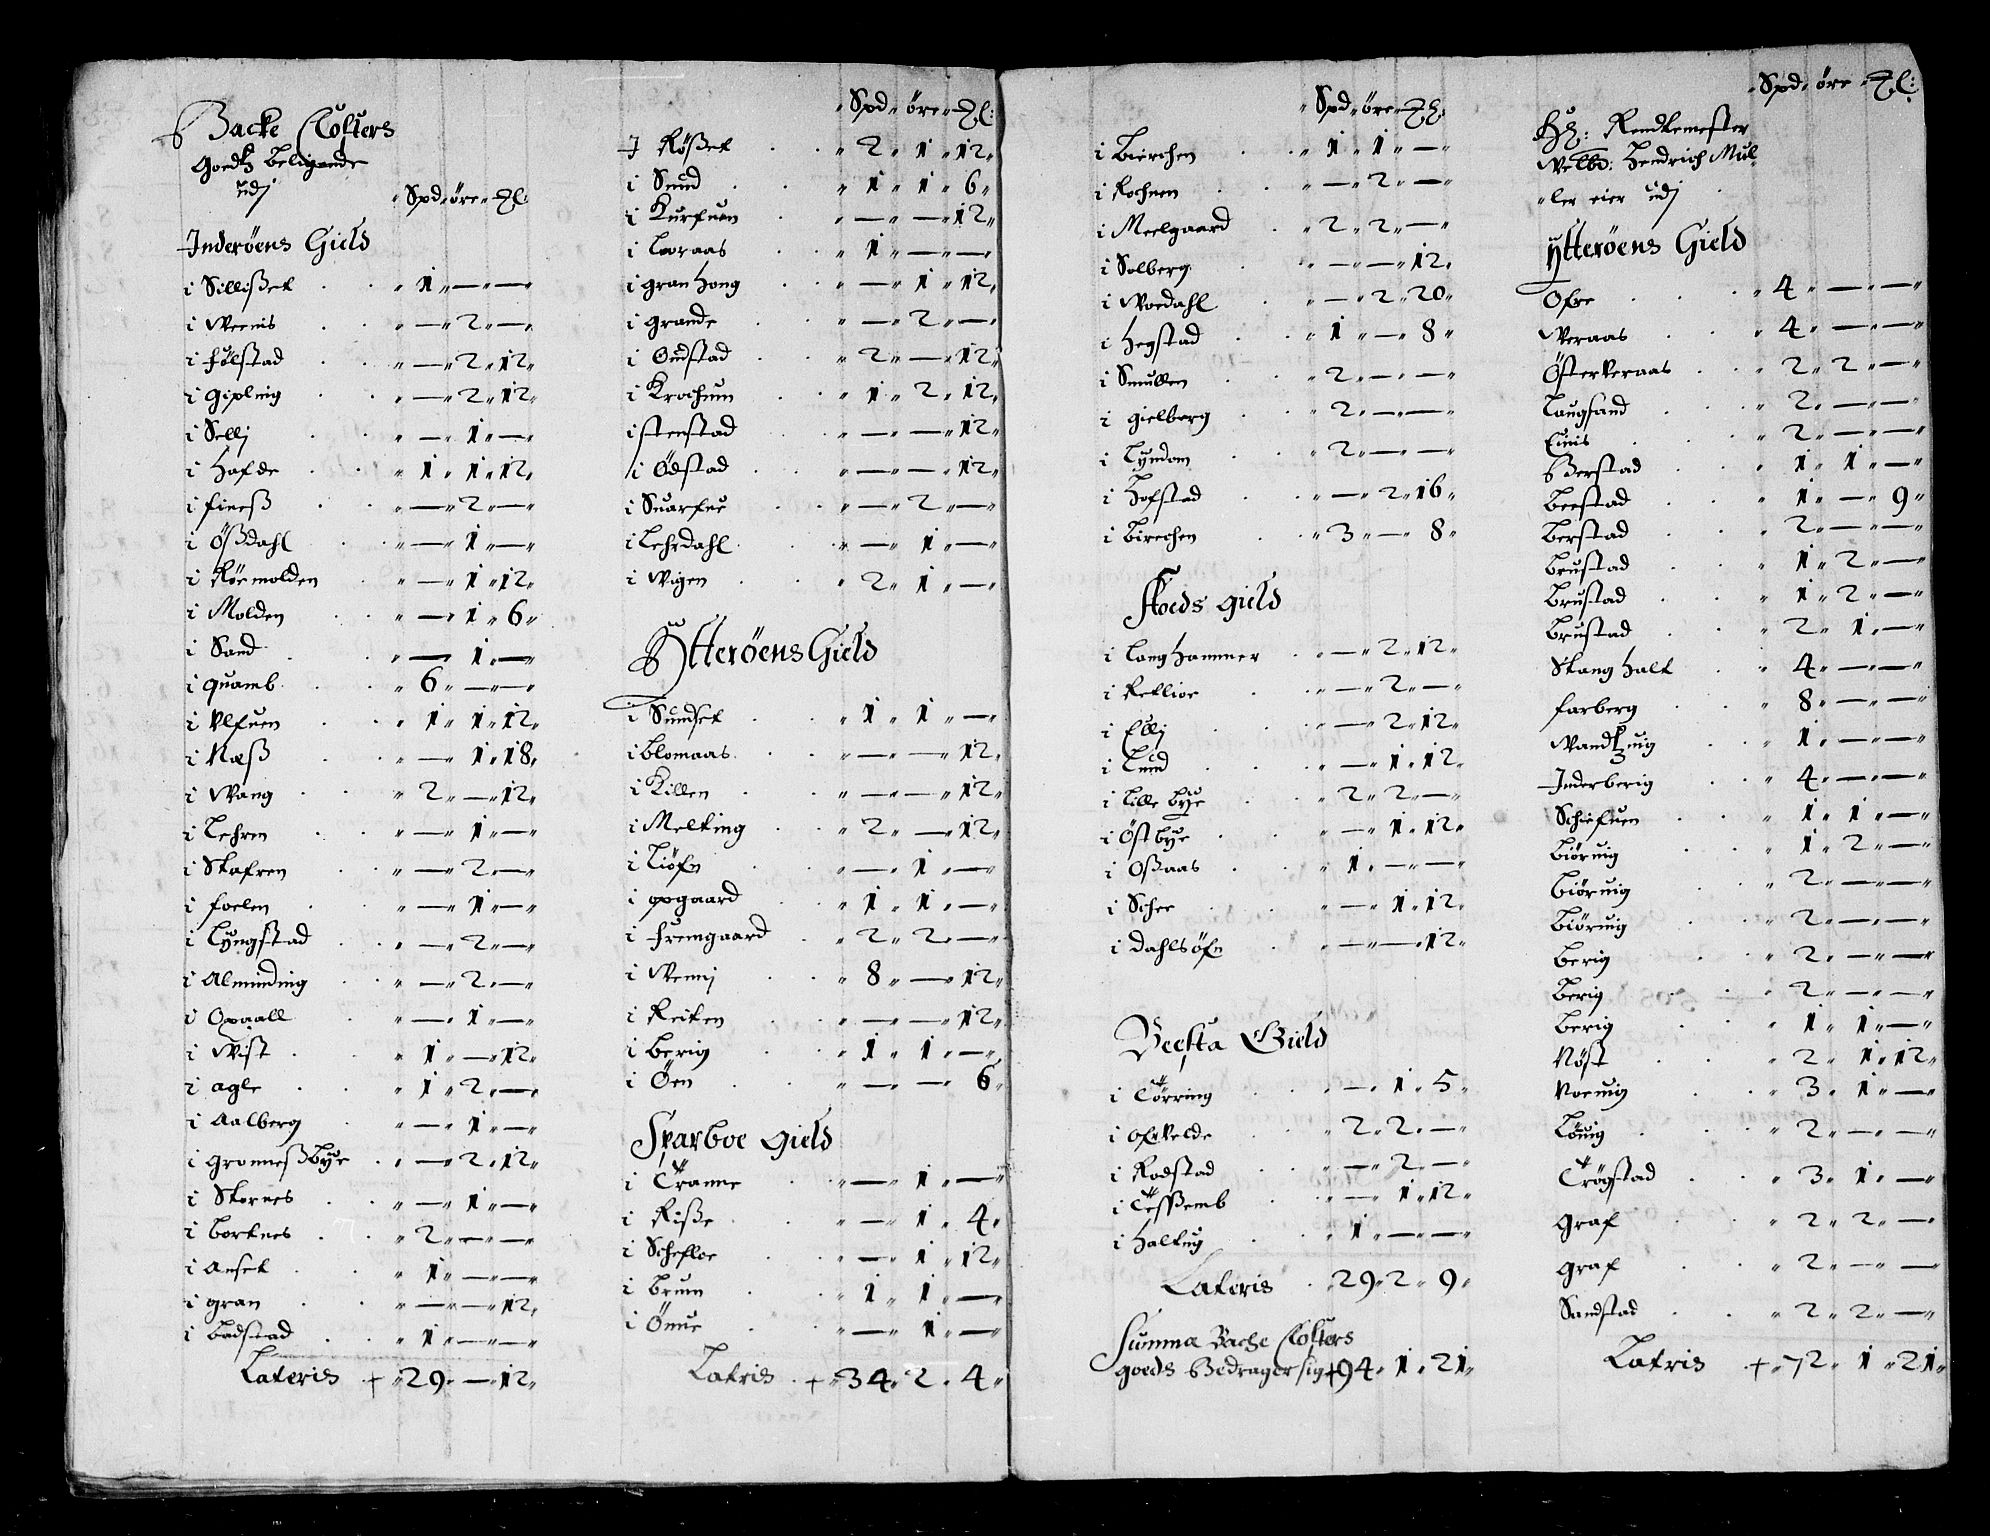 Backe Closters
Goedtz beligende
udj
„ Spd „ öre „ Ƶl:
Inderöens Gield
i Sillißet . . „ 1 „ — „ —
i Weenis . . „ — „ 2 „ —
i Følstad . . „ — „ 2 „ 12 „
i Gipling . . „ — „ 2 „ 12 „
i Sellj . . „ — „ 1 „ —
i Hafde . . „ 1 „ 1 „ 12 „
i Fineß . . „ — „ 2 „ —
i Ößdahl . . „ — „ 1 „ —
i Röemolden . . „ — „ 1 „ 12 „
i Molden . . „ — „ 1 „ 6 „
i Sand . . „ — „ 1 „ —
i quamb . . „ 6 „ — „ —
i Ulfuen . . „ 1 „ 1 „ 12 „
i Næß . . „ — „ 1 „ 18 „
i Wang . . „ 2 „ — „ 12 „
i Lehren . . „ — „ 1 „ —
i Skafren . . „ — „ 2 „ —
i Foelen . . „ — „ 1 „ —
i Lyngstad . . „ — „ 2 „ —
i Alminding . . „ — „ 2 „ —
i Opaall . . „ — „ 1 „ —
i Wist . . „ 1 „ — „ 12 „
i Agle . . „ 1 „ 2 „ —
i Aalberg . . „ — „ 1 „ —
i Gronneßbye . . „ — „ 2 „ 12 „
i Skernes . . „ — „ 1 „ —
i Bortnes . . „ 2 „ — „ —
i Anset . . „ 1 „ — „ —
i gran . . „ — „ — „ 12 „
i Badstad . . „ 1 „ — „ —
Lateris + „ 29 „ — „ 12 „
„ Spd „ öre „ Ƶl:
I Rößet . . „ 2 „ 1 „ 12 „
i Sund . . „ 1 „ 1 „ 6 „
i Kurfuen . . „ — „ — „ 12 „
i Laaraas . . „ 1 „ — „ —
i granhong . . „ — „ 1 „ 12 „
i grande . . „ — „ 2 „ —
i Oudstad . . „ 2 „ — „ 12 „
i Krochum . . „ 1 „ 2 „ 12 „
i stenstad . . „ — „ — „ 12 „
i Ödstad . . „ — „ — „ 12 „
i Suarfue . . „ — „ 2 „ —
i Lehrdahl . . „ — „ 1 „ —
i Wigen . . „ 2 „ 1 „ —
Ytteröens Gield
i Sundset . . „ 1 „ 1 „ —
i Blomaas . . „ — „ — „ 12 „
i Killen . . „ — „ — „ 12 „
i Melting . . „ 2 „ — „ 12 „
i Liöfn . . „ — „ 1 „ —
i opgaard . . „ 1 „ 1 „ —
i fremgaard . . „ 2 „ 2 „ —
i Wennj . . „ 8 „ — „ 12 „
i Reiten . . „ — „ — „ 12 „
i Berig . . „ 1 „ 1 „ —
i Öen . . „ — „ — „ 6 „
Sparboe Gield
i Tranne . . „ — „ 1 „ —
i Riße . . „ — „ 1 „ 4 „
i Schefloe . . „ — „ 1 „ 12 „
i Brum . . „ 1 „ 1 „ —
i Ömue . . „ — „ 1 „ —
Latris . + „ 34 „ 2 „ 4 „
„ Spd „ öre „ Ƶl:
i Bierchen . . „ 1 „ 1 „ —
i Rochnen . . „ — „ 2 „ —
i Meelgaard . . „ 2 „ 2 „ —
i Solberg . . „ — „ — „ 12 „
i Woedahl . . „ — „ 2 „ 20 „
i Hegstad . . „ 1 „ — „ 8 „
i Smullen . . „ 2 „ — „ —
i gielberg . . „ 2 „ — „ —
i Lyndom . . „ 2 „ — „ —
i Hofstad . . „ — „ 2 „ 16 „
i Birechen . . „ 3 „ — „ 8 „
Stods gield
i Langhammer . . „ — „ 2 „ 12 „
i Retlioe . . „ — „ 2 „ —
i Ellj . . „ — „ 2 „ 12 „
i Lund . . „ — „ 1 „ 12 „
i Lille bye . . „ 2 „ 2 „ —
i Östbye . . „ — „ 1 „ 12 „
i Oßaas . . „ 1 „ — „ —
i Schee . . „ — „ 1 „ 12 „
i dahlsöfn . . „ — „ — „ 12 „
Beesta Gield
i Törring . . „ — „ 1 „ 5 „
i Ofrvelde . . „ 2 „ 2 „ —
i Rodstad . . „ — „ 2 „ —
i Tessßemb . . „ — „ 1 „ 12 „
i Haltug . . „ 1 „ — „ —
Lateris . „ 29 „ 2 „ 9 „
Summa Bache Closters
goeds Bedrager sig + 94 „ 1 „ 21 „
„ Spd „ öre „ Ƶl:
Hr: Rendtemester
Welbr: Hendrich Mul„
„ler eier udj
Ytteröens Gield
Ofre . . „ 4 „ — „ —
Weraas . . „ 4 „ — „ —
Österveraas . . „ 2 „ 2 „ —
Laugsand . . „ 2 „ — „ —
Einis . . „ 2 „ — „ —
Berstad . . „ 1 „ 1 „ —
Beestad . . „ 1 „ — „ 9 „
Berstad . . „ 2 „ — „ —
Brustad . . „ 1 „ 2 „ —
Brustad . . „ 1 „ 2 „ —
Brustad . . „ 2 „ 1 „ —
Skanghalt . . „ 4 „ — „ —
farberg . . „ 8 „ — „ —
Wandtzuig . . „ 1 „ — „ —
Inderberig . . „ 4 „ — „ —
Schiefuen . . „ 1 „ 1 „ —
Biöruig . . „ 1 „ 2 „ —
Biöruig . . „ 2 „ — „ —
Biöruig . . „ 2 „ — „ —
Berig . . „ 2 „ — „ —
Berig . . „ 2 „ — „ —
Berig . . „ 1 „ 1 „ —
Nöst . . „ 2 „ 1 „ 12 „
Noeuig . . „ 3 „ 1 „ —
Löuig . . „ 2 „ — „ —
Trögstad . . „ 3 „ 1 „ —
Graf . . „ 2 „ 2 „ —
Graf . . „ 2 „ — „ —
Sandstad . . „ 2 „ 2 „ —
Latris + „ 72 „ 1 „ 21 „